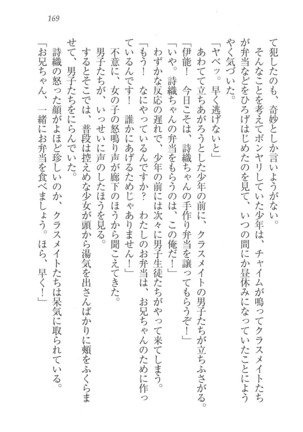 169
て犯したのも、奇妙としか言いようがない。
そんなことを考えてボンヤリしていた少年は、チャイムが鳴ってクラスメイトたち
が弁当などをひろげはじめたのを見て、いつの間にか昼休みになっていたことによう
やく気づいた。
「ヤベッ。早く逃げないと」
あわてて立ちあがろうとした少年の前に、クラスメイトの男子たちが立ちふさがる。
「伊能！　今日こそは、詩織ちゃんの手作り弁当を譲ってもらうぞ！」
「いや。詩織ちゃんの弁当をもらうのは、この俺だ！」
わずかな反応の遅れで、少年の前には次々に男子生徒たちがやって来てしまう。
「もう！　なにやっているんですか？　わたしのお弁当は、お兄ちゃんのために作っ
ているんです！　誰かにあげるためじゃありません！」
不意に、女の子の怒鳴り声が廊下のほうから聞こえてきた。
男子たちが、いっせいに声のしたほうを見る。
するとそこでは、普段は控えめな少女が頭から湯気を出さんばかりに頰をふくらま
せて、男子たちをにらんでいた。
詩織の怒った顔がよほど珍しいのか、クラスメイトたちは呆気に取られている。
「お兄ちゃん、一緒にお弁当を食べましょう。ほら、早く！」